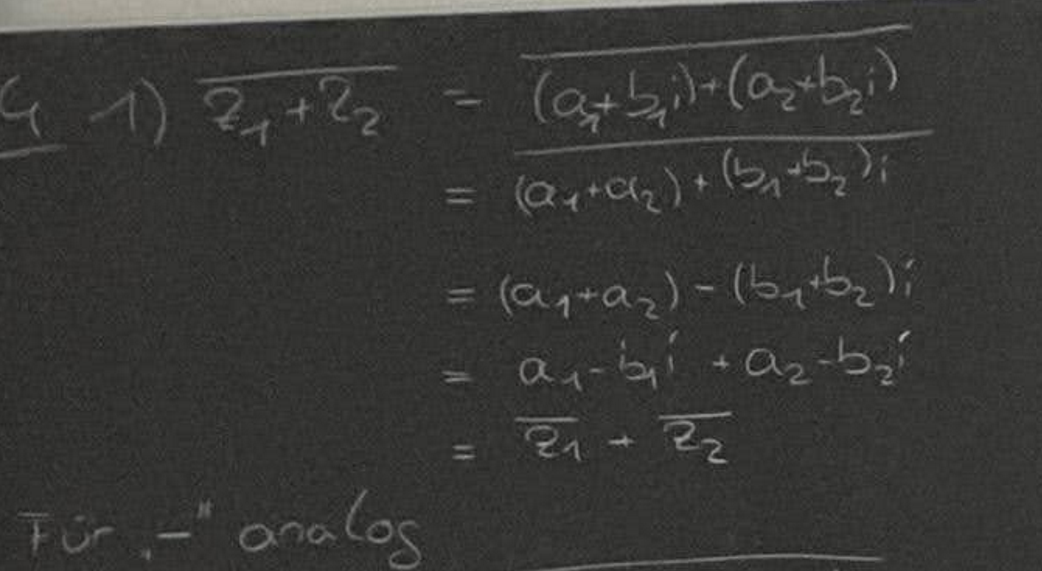 4 1) \overline{z₁+z₂} = \overline{(a₁+b₁i)+(a₂+b₂i)}
= \overline{(a₁+a₂)+(b₁+b₂)i}
= (a₁+a₂)-(b₁+b₂)i
= a₁-b₁i + a₂-b₂i
= \overline{z₁} + \overline{z₂}
Für „-" analog